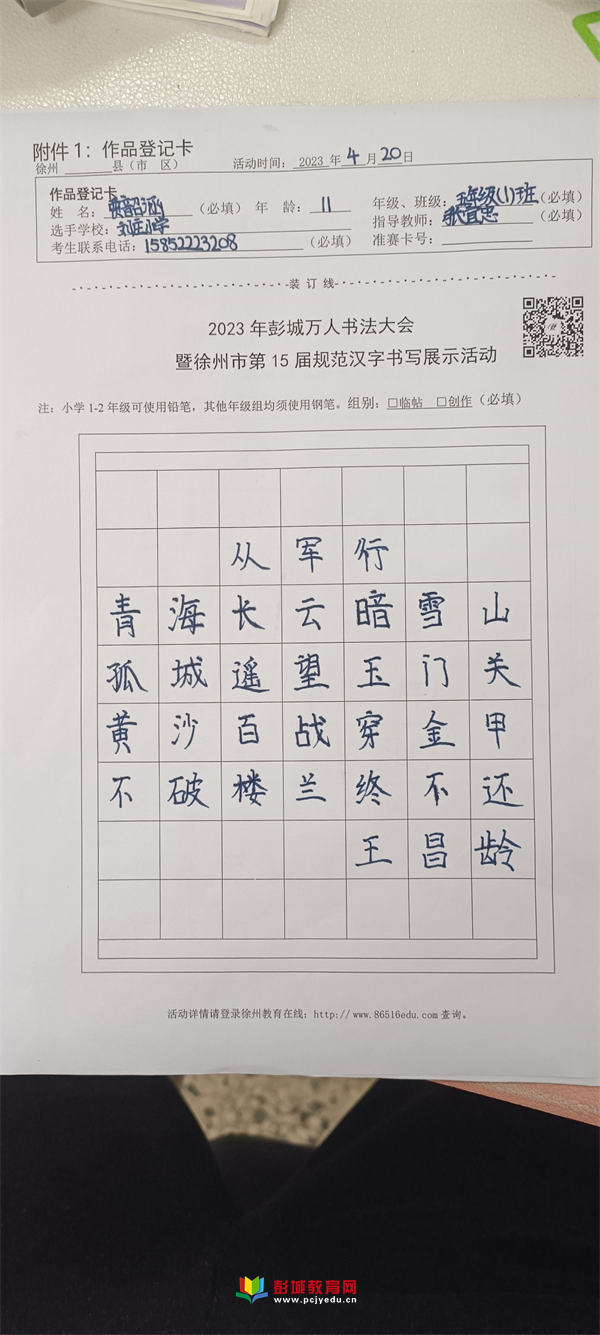 附件1：作品登记卡
徐州 ______ 县（市 区） 活动时间： 2023 年 4 月 20 日
作品登记卡
姓 名： 贾韶涵 （必填） 年 龄： 11 年级、班级：五年级(1)班（必填）
选手学校：刘庄小学 指导教师：张宜忠（必填）
考生联系电话：15852223208（必填） 准赛卡号：
装 订 线
2023 年彭城万人书法大会
暨徐州市第 15 届规范汉字书写展示活动
注：小学 1-2 年级可使用铅笔，其他年级组均须使用钢笔。组别：□临帖 □创作（必填）
从军行
青海长云暗雪山
孤城遥望玉门关
黄沙百战穿金甲
不破楼兰终不还
王昌龄
活动详情请登录徐州教育在线：http://www.86516edu.com 查询。
彭城教育网
www.pcjyedu.cn